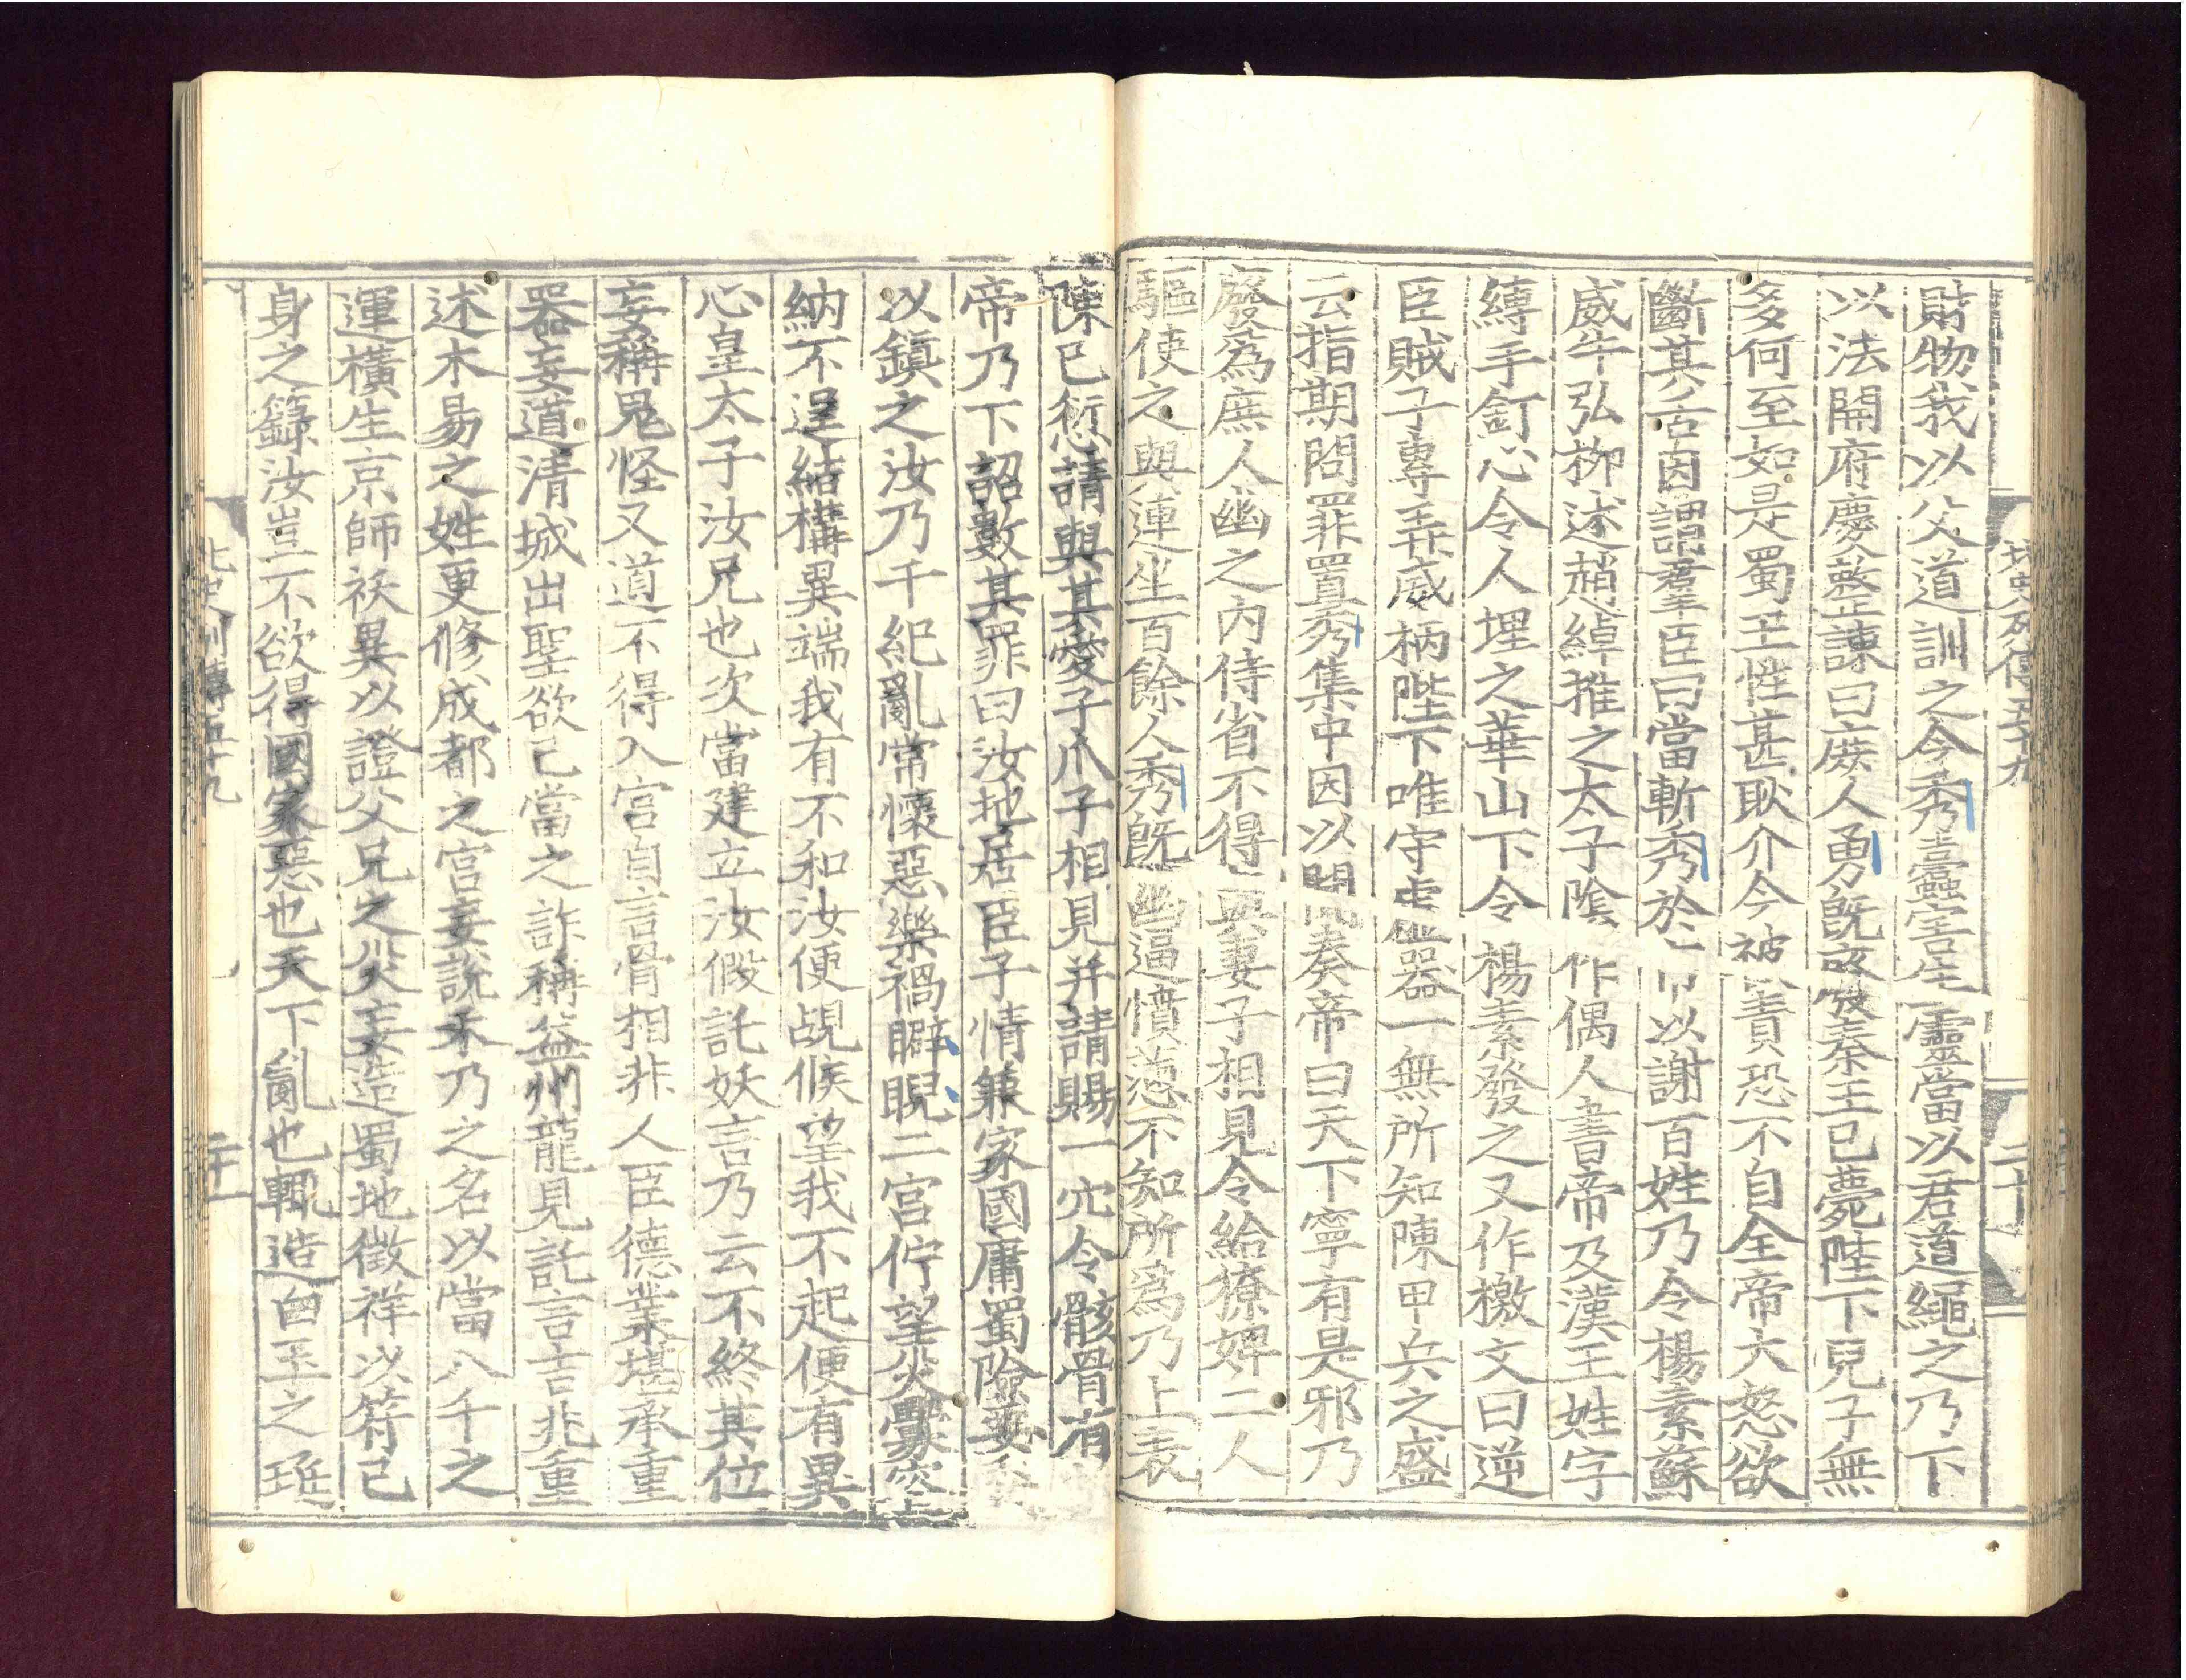 北史列傳五十九
二十
財物我以父道訓之今秀蠹害生靈當以君道繩之乃下
以法開府慶整諫曰庶人勇旣廢秦王已薨陛下兒子無
多何至如是蜀王性甚耿介今被責恐不自全帝大怒欲
斷其舌因謂羣臣曰當斬秀於市以謝百姓乃令楊素蘇
威牛弘柳述趙綽推之太子陰作偶人書帝及漢王姓字
縛手釘心令人埋之華山下令楊素發之又作檄文曰逆
臣賊子專弄威柄陛下唯守虛器一無所知陳甲兵之盛
云指期問罪置秀集中因以聞奏帝曰天下寧有是邪乃
廢爲庶人幽之內侍省不得與妻子相見令給獠婢二人
驅使之與連坐百餘人秀旣幽逼憤懣不知所爲乃上表
陳已愆請與其愛子爪子相見并請賜一穴令骸骨有
帝乃下詔數其罪曰汝地居臣子情兼家國庸蜀險要
以鎭之汝乃干紀亂常懷惡樂禍睥睨二宮佇望災釁容
納不逞結構異端我有不和汝便覘候望我不起便有異
心皇太子汝兄也次當建立汝假託妖言乃云不終其位
妄稱鬼怪又道不得入宮自言骨相非人臣德業堪承重
器妄道清城出聖欲己當之詐稱益州龍見託言吉兆重
述木易之姓更修成都之宮妄說禾乃之名以當八千之
運橫生京師祅異以證父兄之災妄造蜀地徵祥以符己
身之籙汝豈不欲得國家惡也天下亂也輒造白玉之珽
北史列傳五十九
二十一